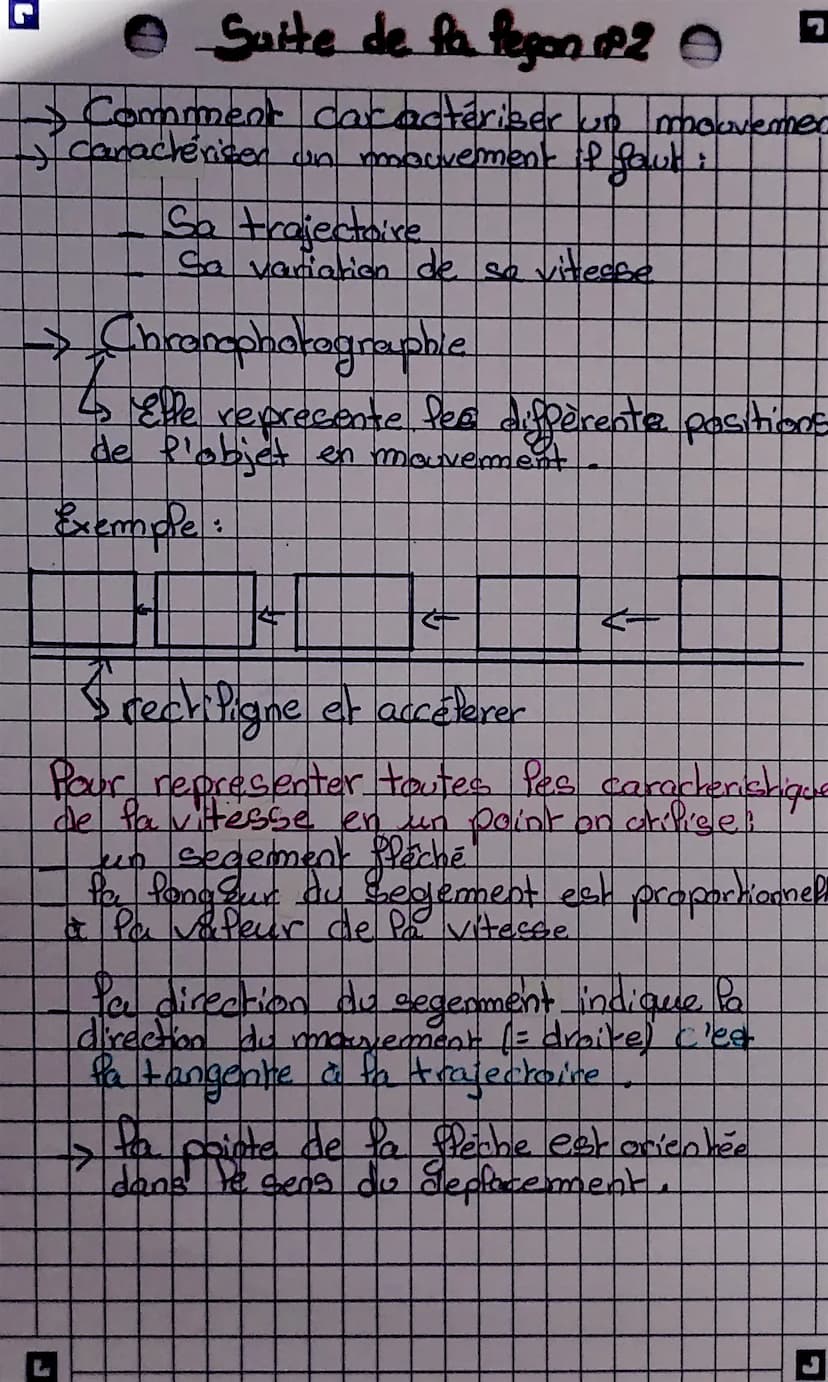 Suite de la leçon n°2
→ Comment caractériser un mouvemen
→ caractériser un mouvement il faut :
- Sa trajectoire
- Sa variation de sa vitesse
→ Chronophotographie
↳ Elle represente les différente positions
de l'objet en mouvement.
Exemple :
↳ rectiligne et accélerer
Pour représenter toutes les caracteristique
de la vitesse en un point on utilise :
- un segement fléché
- la longeur du segement est proportionnel
à la valeur de la vitesse
- la direction du segement indique la
direction du mouvement (= droite) c'est
la tangente à la trajectoire.
→ la pointe de la flèche est orientée
dans le sens du deplacement.